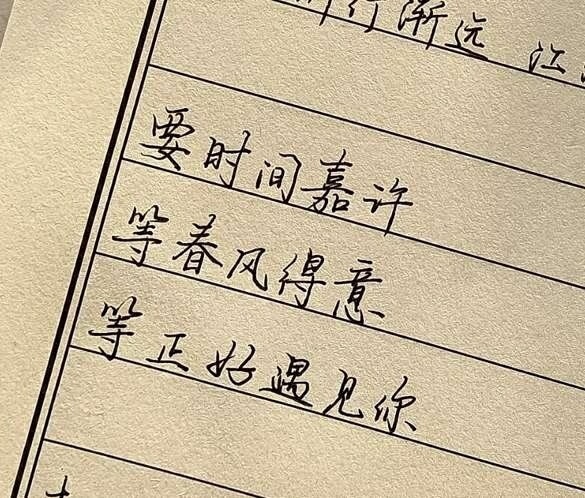 渐行渐远 江
要时间嘉许
等春风得意
等正好遇见你